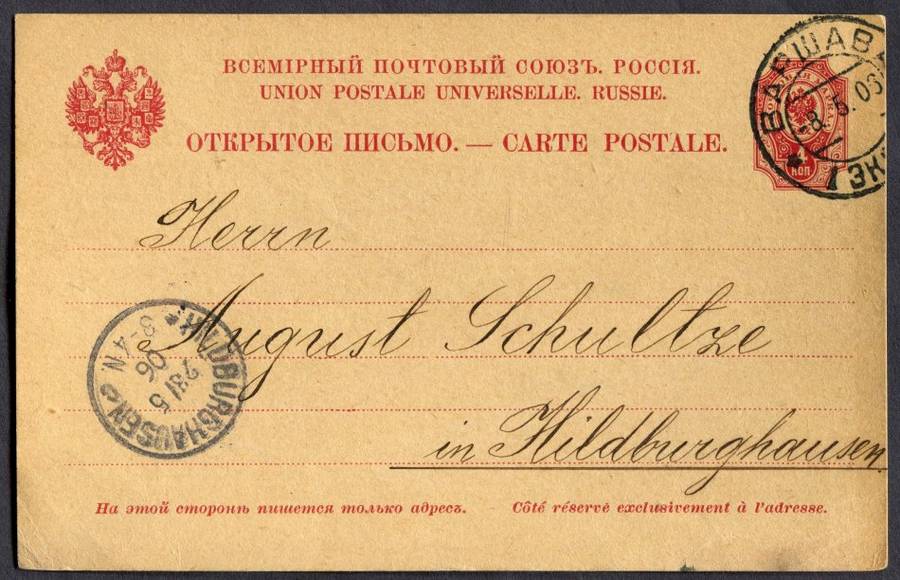 ВСЕМІРНЫЙ ПОЧТОВЫЙ СОЮЗЪ. РОССІЯ.
UNION POSTALE UNIVERSELLE. RUSSIE.
ОТКРЫТОЕ ПИСЬМО. — CARTE POSTALE.
ВАРШАВ
8.5.06
4
КОП
Herrn
August Schultze
in Hildburghausen
HILDBURGHAUSEN
06
3-4 N
На этой сторонѣ пишется только адресъ. Côté réservé exclusivement à l'adresse.